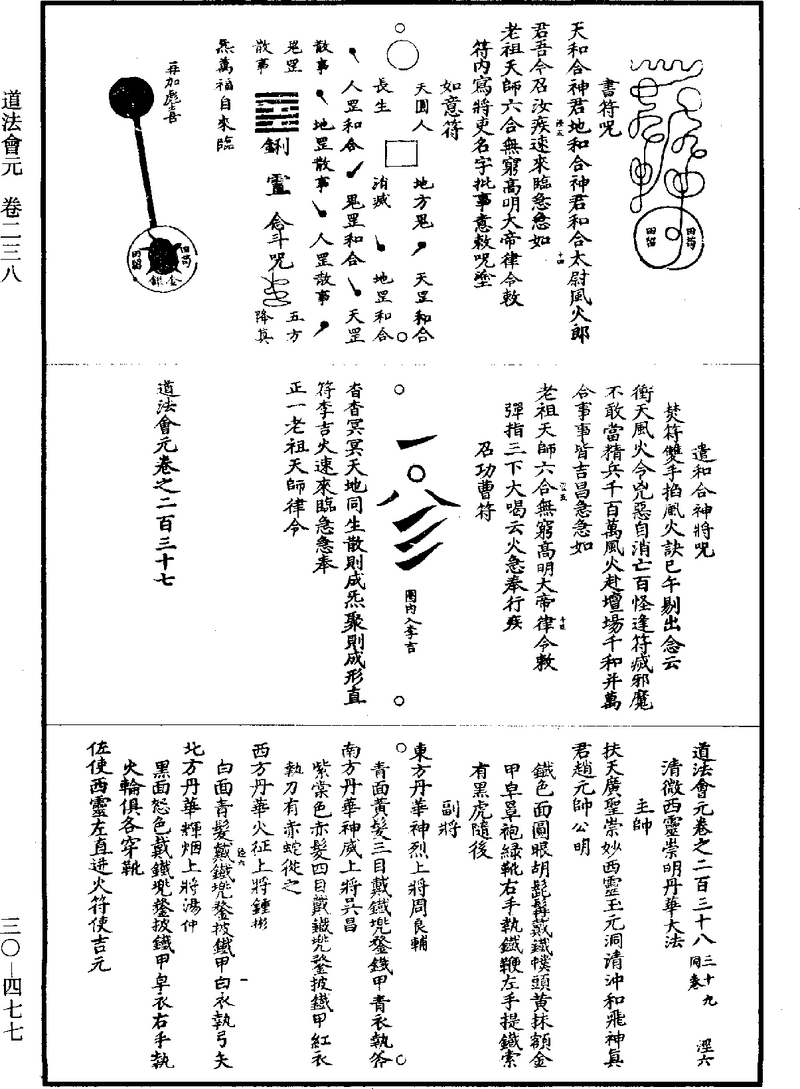 道法會元　卷二三八
三〇—四七七
田苟
田留
書符呪
天和合神君地和合神君和合太尉風火郎
君吾今召汝疾速來臨急急如
老祖天師六合無窮高明大帝律令敕
符内寫將吏名字批事意敕呪塗
如意符
天圓人　地方鬼　天罡和合
長生　消滅　地罡和合
人罡和合　鬼罡和合　天罡
散事　地罡散事　人罡散事
鬼罡　鋓　靈　念斗呪　五方
散事　降真
炁萬福自來臨
再加彪喜
田苟
田留
金銀
遣和合神將呪
焚符雙手掐風火訣巳午剔出念云
衝天風火令兇惡自消亡百怪逢符滅邪魔
不敢當精兵千百萬風火赴壇場千和并萬
合事事皆吉昌急急如
老祖天師六合無窮高明大帝律令敕
彈指三下大喝云火急奉行疾
召功曹符
圈内入李吉
杳杳冥冥天地同生散則成炁聚則成形直
符李吉火速來臨急急奉
正一老祖天師律令
道法會元卷之二百三十七
道法會元卷之二百三十八　三十九同卷　淫六
清微西靈崇明丹華大法
主帥
扶天廣聖崇妙西靈玉元洞清沖和飛神真
君趙元帥公明
鐵色面圓眼胡髭髯戴鐵幞頭黃抹額金
甲皁罩袍綠靴右手執鐵鞭左手提鐵索
有黑虎隨後
副將
東方丹華神烈上將周良輔
青面黃髮三目戴鐵兜鍪鐵甲青衣執斧
南方丹華神威上將吳昌
紫棠色赤髮四目戴鐵兜鍪披鐵甲紅衣
執刀有赤蛇從之
西方丹華火征上將鍾彬
白面青髮戴鐵兜鍪披鐵甲白衣執弓矢
北方丹華輝烟上將湯仲
黑面怒色戴鐵兜鍪披鐵甲皁衣右手執
火輪俱各穿靴
佐使西靈左直進火符使吉元